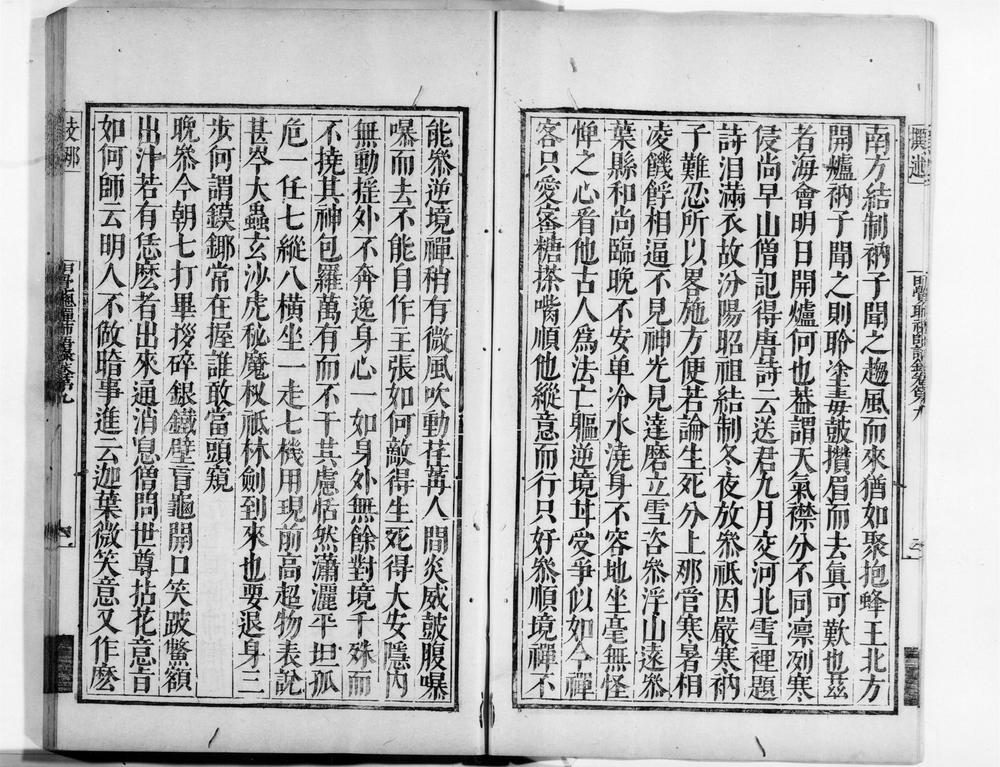 南方結制衲子聞之趨風而來猶如聚抱蜂王北方
開爐衲子聞之則聆塗毒鼓攢眉而去真可歎也茲
者海會明日開爐何也葢謂天氣襟分不同凛冽寒
侵尚早山僧記得唐詩云送君九月交河北雪裡題
詩泪滿衣故汾陽昭祖結制冬夜放叅祇因嚴寒衲
子難忍所以畧施方便若論生死分上那管寒暑相
凌饑餒相逼不見神光見達磨立雪咨叅浮山遠叅
葉縣和尚臨晚不安单冷水澆身不容地坐毫無怪
憚之心看他古人為法亡軀逆境丼愛爭似如今禪
客只愛蜜糖搽嘴順他縱意而行只好叅順境禪不
能叅逆境禪稍有微風吹動荏苒人間炎威鼓腹曝
曝而去不能自作主張如何敵得生死得大安隱內
無動搖外不奔逸身心一如身外無餘對境千殊而
不撓其神包羅萬有而不干其慮恬然瀟灑平坦孤
危一任七縱八橫坐一走七機用現前高超物表說
甚岑大蟲玄沙虎秘魔杈祇林劍到來也要退身三
步何謂鏌鎁常在握誰敢當頭窺
晚叅今朝七打畢拶碎銀鐵壁盲龜開口笑跛鱉額
出汁若有恁麽者出來通消息僧問世尊拈花意旨
如何師云明人不做暗事進云迦葉微笑意又作麽